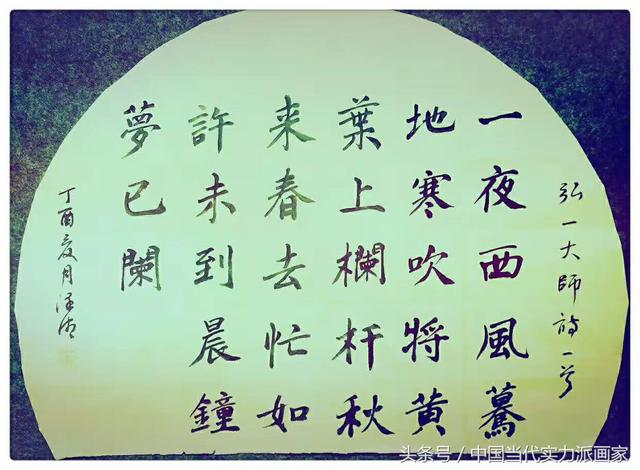 弘一大師詩一首
一夜西風驀
地寒吹將黄
葉上欄杆秋
来春去忙如
許未到晨鐘
夢已闌
丁酉夏月
头条号 / 中国当代实力派画家